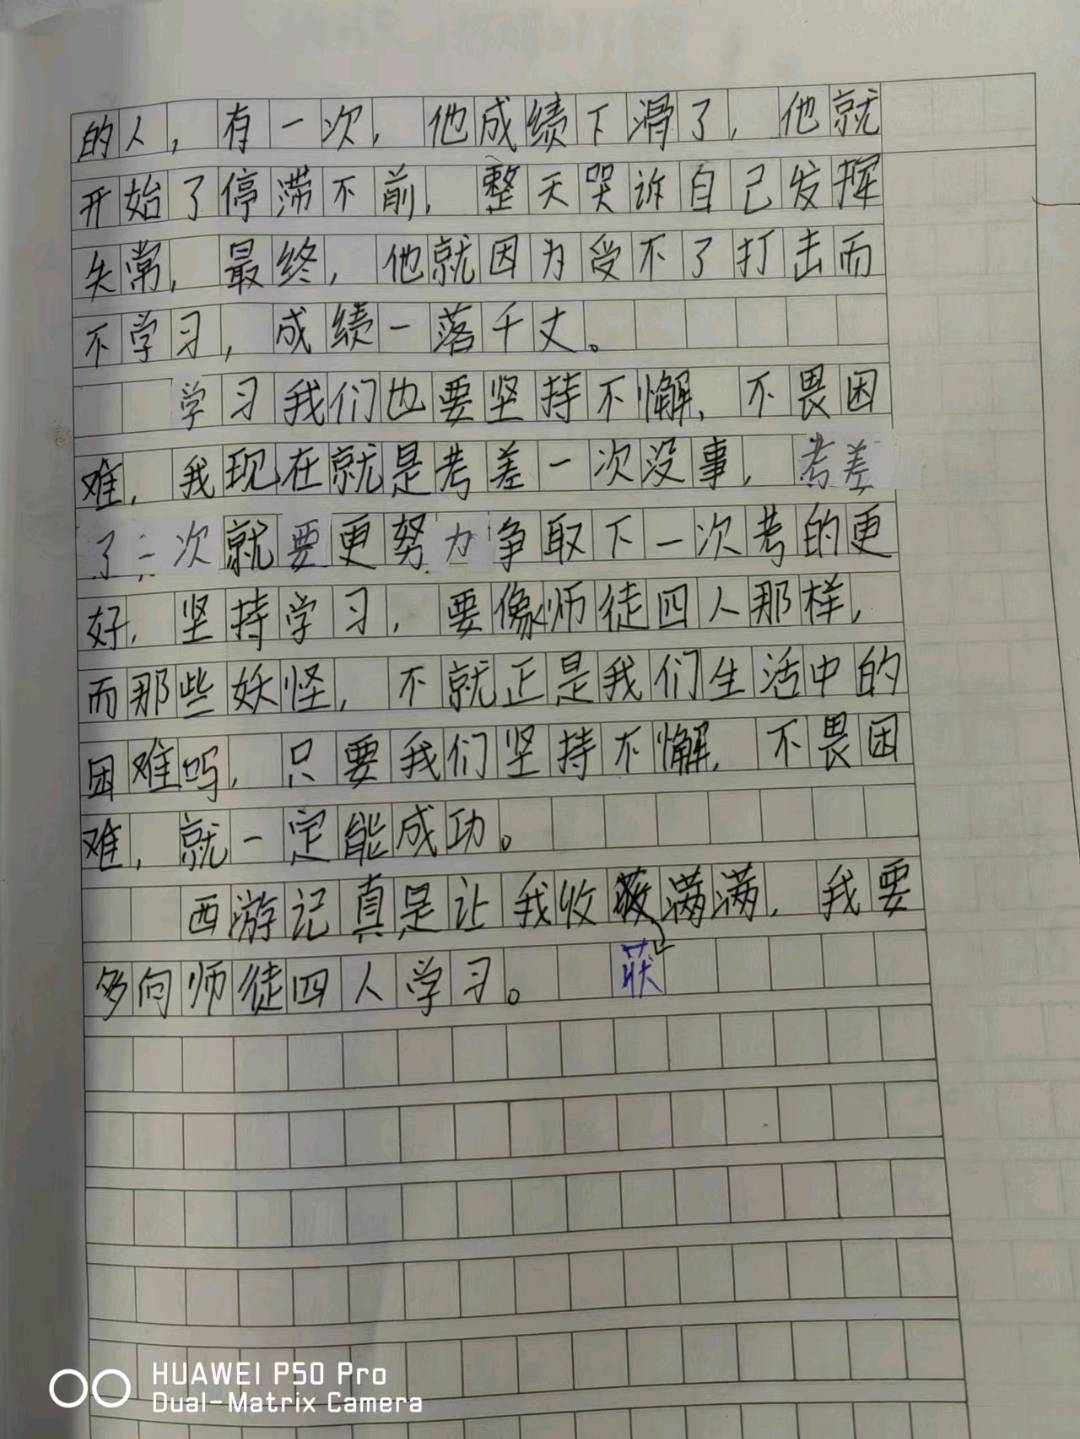 的人，有一次，他成绩下滑了，他就
开始了停滞不前，整天哭诉自己发挥
失常，最终，他就因为受不了打击而
不学习，成绩一落千丈。
学习我们也要坚持不懈，不畏困
难，我现在就是考差一次没事，考差
了一次就要更努力争取下一次考的更
好，坚持学习，要像师徒四人那样，
而那些妖怪，不就正是我们生活中的
困难吗，只要我们坚持不懈，不畏困
难，就一定能成功。
西游记真是让我收获满满，我要
多向师徒四人学习。 获
HUAWEI P50 Pro
Dual-Matrix Camera